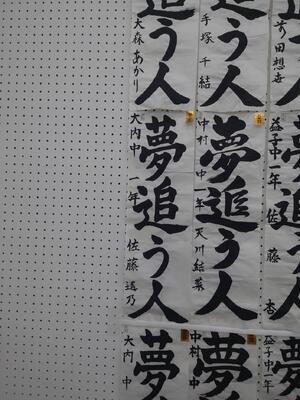 追う人
手塚千結
追う人
大森あかり
益子中一年 佐藤杏
夢追う人
中村中一年 天川結菜
夢追う人
大内中一年 佐藤
益子中一年
夢
中村中
夢
大内中